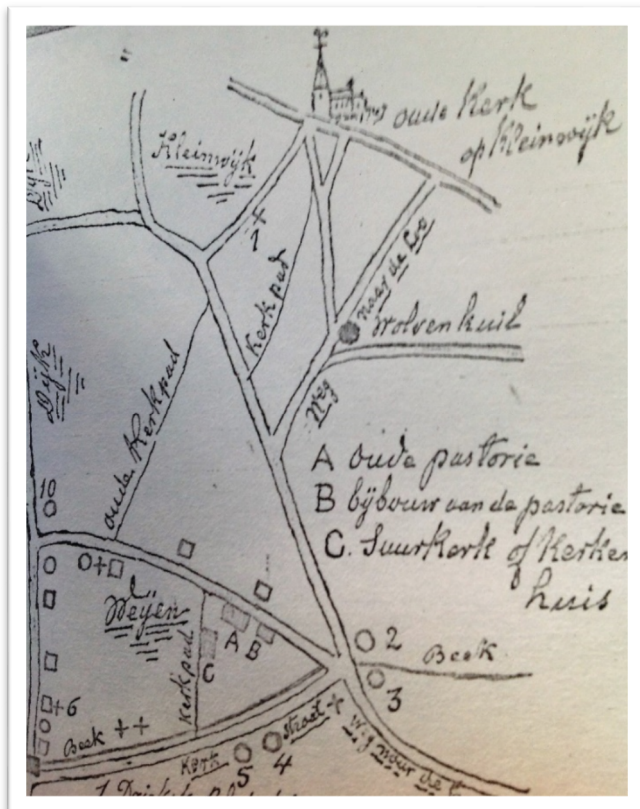 oude Kerk
op Kleinwijk
Kleinwijk
Dijk
1
Kerkpad
Weg naar de Loo
Wolvenkuil
Dijk
oude Kerkpad
A oude pastorie
B bijbouw aan de pastorie
C. Suurkerk of Kerke
huis
10
Weijen
A
B
C
Kerkpad
2
Beek
3
6
Beek
Kerk straat
5
4
Weg naar de